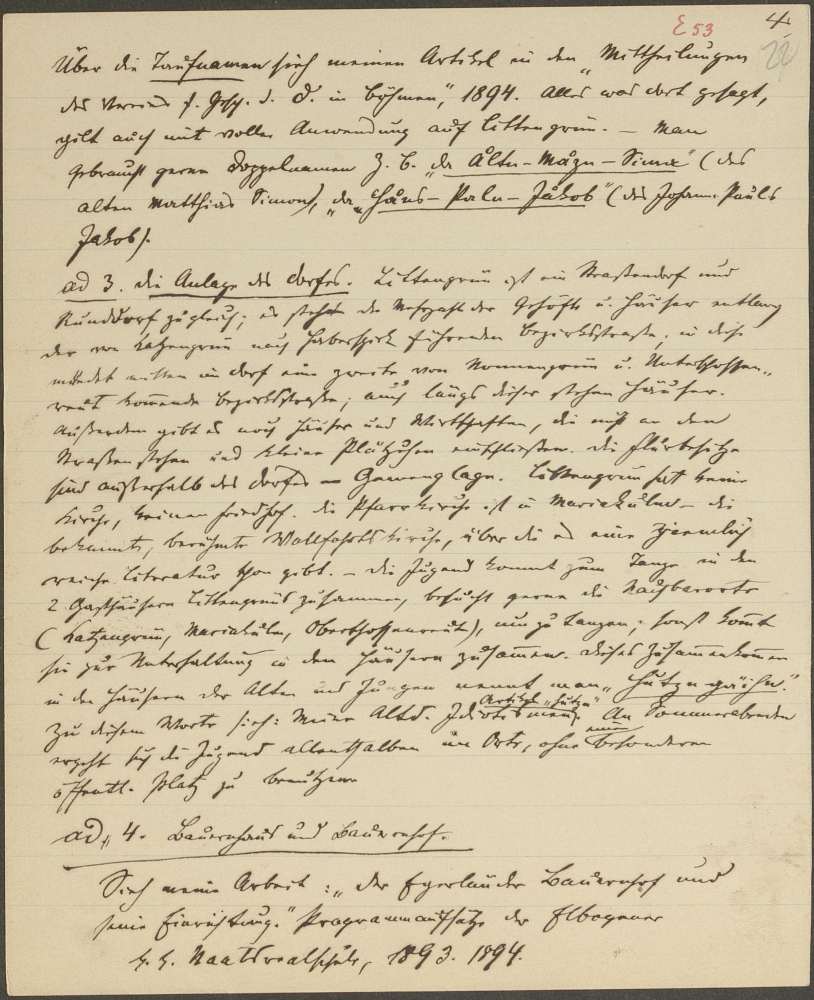 E 53
4
Über die Taufnamen sieh meinen Artikel in den „Mittheilungen
des Vereins f. Gesch. d. D. in Böhmen", 1894. Alles was dort gesagt,
gilt auch mit voller Anwendung auf Littengrün. — Man
gebraucht gerne Doppelnamen z. B. „da Åltn-Måzn-Sima" (des
alten Matthias Simon), „da Håns-Paln-Jåkob" (des Johann Pauls
Jakob).
ad 3. die Anlage des Dorfes. Littengrün ist ein Straßendorf und
Runddorf zugleich; es stehen die Mehrzahl der Gehöfte u. Häuser entlang
der von Katzengrün nach Haberspirk führenden Bezirksstraße; in diese
mündet mitten im Dorf eine zweite von Nonnengrün u. Unterschossen-
reut kommende Bezirksstraße; auch längs dieser stehen Häuser.
Außerdem gibt es noch Häuser und Wirtschaften, die nicht an den
Straßen stehen und kleine Plätzchen einschließen. Die Flurbesitze
sind außerhalb des Dorfes — Gewenglage. Littengrün hat keine
Kirche, keinen Friedhof. Die Pfarrkirche ist in Mariakulm — die
bekannte, berühmte Wallfahrtskirche, über die es eine ziemlich
reiche Literatur schon gibt. — Die Jugend kommt zum Tanze in den
2 Gasthäusern Littengrüns zusammen, besucht gerne die Nachbarorte
(Katzengrün, Mariakulm, Oberschossenreut), um zu tanzen; sonst kommt
sie zur Unterhaltung in den Häusern zusammen. Dieses Zusammenkommen
in den Häusern der Alten und Jungen nennt man „Hutzngåihn".
Artikel „Hutzn"
Zu diesem Worte sieh: Meine Altd. An Sommerabenden
ergeht sich die Jugend allenthalben im Orte, ohne einen besonderen
öffentl. Platz zu benützen.
ad 4. Bauernhaus und Bauernhof.
Sieh meine Arbeit: „Der Egerländer Bauernhof und
seine Einrichtung." Programmaufsätze der Elbogener
k. k. Staatsrealschule, 1893. 1894.